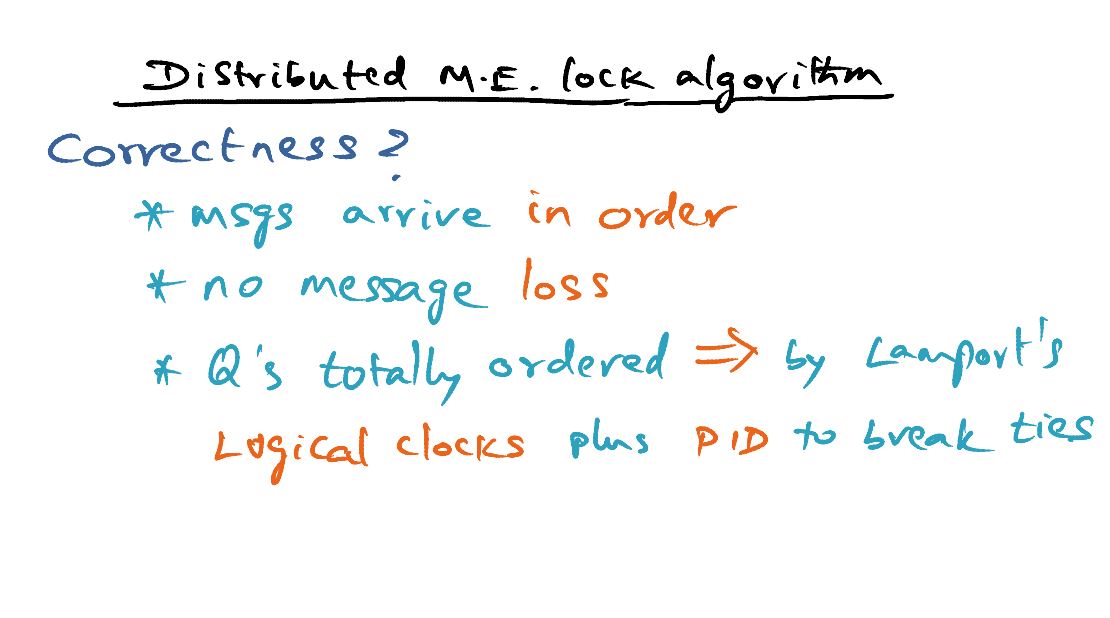 Distributed M.E. lock algorithm
Correctness?
* msgs arrive in order
* no message loss
* Q's totally ordered ⇒ by Lamport's
Logical clocks plus PID to break ties